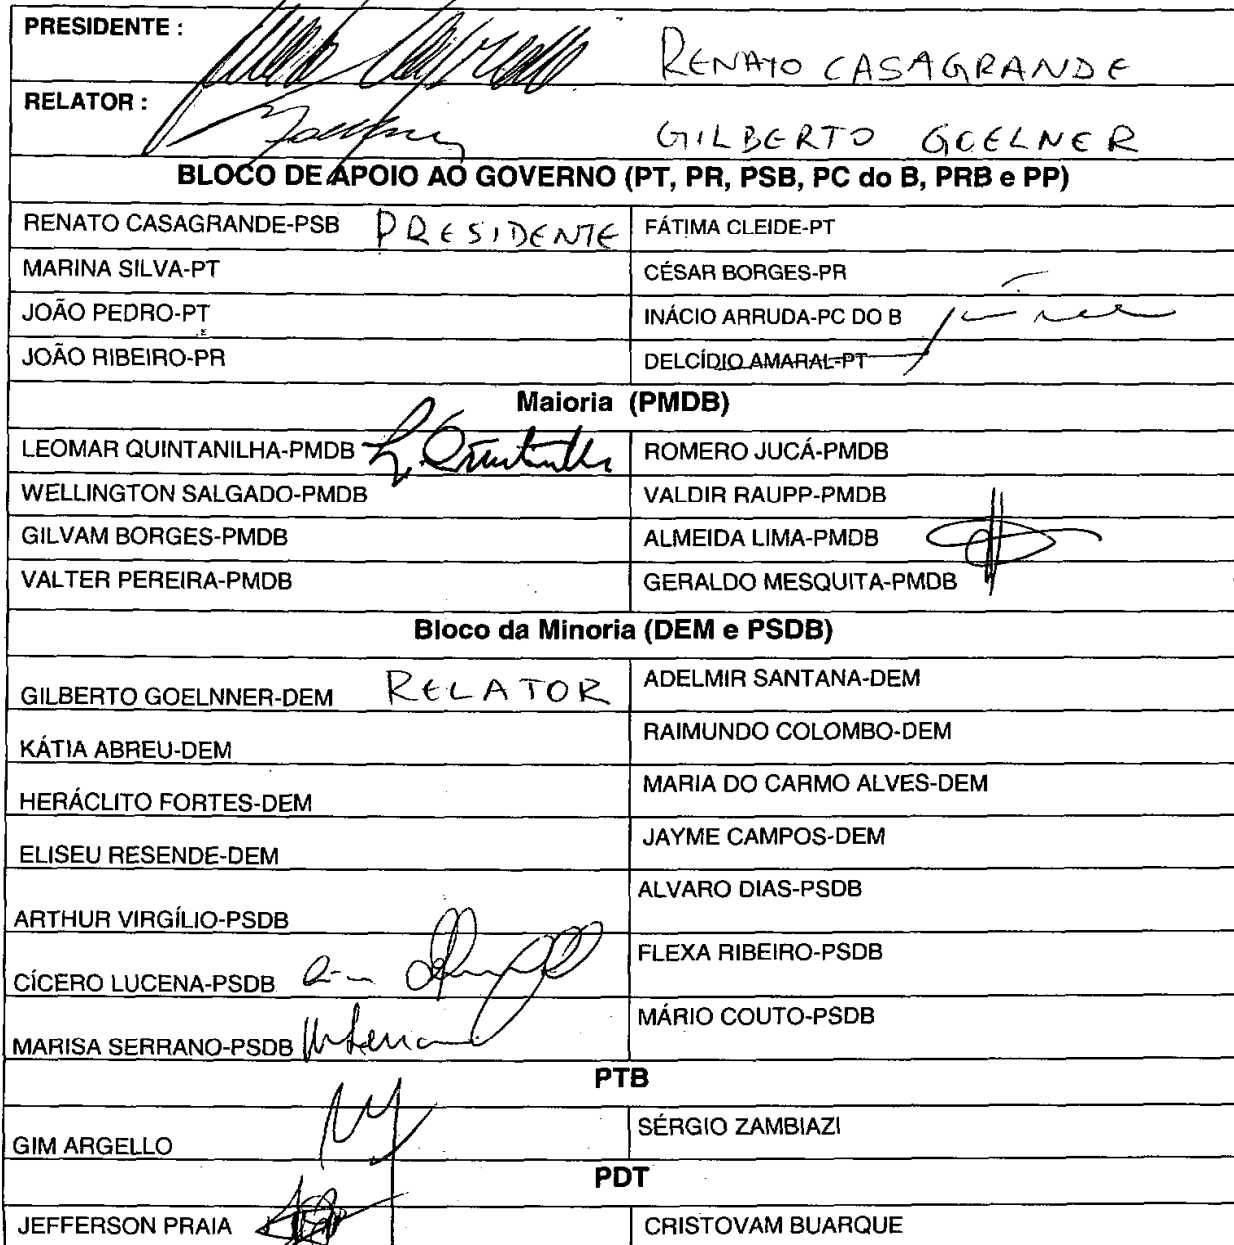 PRESIDENTE : RENATO CASAGRANDE
RELATOR : GILBERTO GOELNER
BLOCO DE APOIO AO GOVERNO (PT, PR, PSB, PC do B, PRB e PP)
RENATO CASAGRANDE-PSB PRESIDENTE FÁTIMA CLEIDE-PT
MARINA SILVA-PT CÉSAR BORGES-PR
JOÃO PEDRO-PT INÁCIO ARRUDA-PC DO B
JOÃO RIBEIRO-PR DELCÍDIO AMARAL-PT
Maioria (PMDB)
LEOMAR QUINTANILHA-PMDB L. Quintanilha ROMERO JUCÁ-PMDB
WELLINGTON SALGADO-PMDB VALDIR RAUPP-PMDB
GILVAM BORGES-PMDB ALMEIDA LIMA-PMDB
VALTER PEREIRA-PMDB GERALDO MESQUITA-PMDB
Bloco da Minoria (DEM e PSDB)
GILBERTO GOELNNER-DEM RELATOR ADELMIR SANTANA-DEM
KÁTIA ABREU-DEM RAIMUNDO COLOMBO-DEM
HERÁCLITO FORTES-DEM MARIA DO CARMO ALVES-DEM
ELISEU RESENDE-DEM JAYME CAMPOS-DEM
ARTHUR VIRGÍLIO-PSDB ALVARO DIAS-PSDB
CÍCERO LUCENA-PSDB FLEXA RIBEIRO-PSDB
MARISA SERRANO-PSDB MÁRIO COUTO-PSDB
PTB
GIM ARGELLO SÉRGIO ZAMBIAZI
PDT
JEFFERSON PRAIA CRISTOVAM BUARQUE